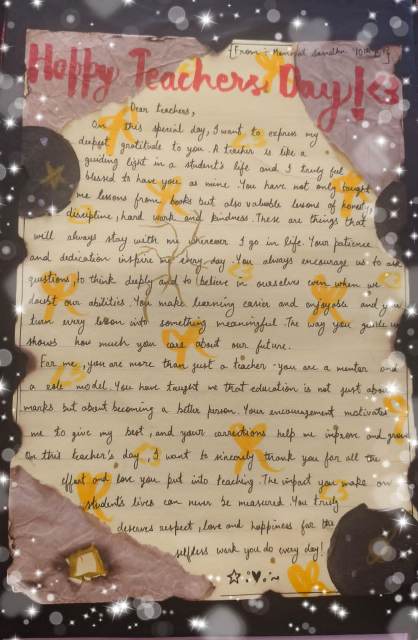 [From :- Manreet Sandhu '10th B']
Happy Teachers Day! <3
Dear teachers,
On this special day, I want to express my
deepest gratitude to you. A teacher is like a
guiding light in a student's life and I truly feel
blessed to have you as mine. You have not only taught
me lessons from books but also valuable lessons of honesty,
discipline, hard work and kindness. These are things that
will always stay with me wherever I go in life. Your patience
and dedication inspire me every day. You always encourage us to ask
questions, to think deeply and to believe in ourselves even when we
doubt our abilities. You make learning easier and enjoyable and you
turn every lesson into something meaningful. The way you guide us
shows how much you care about our future.
For me, you are more than just a teacher - you are a mentor and
a role model. You have taught me that education is not just about
marks but about becoming a better person. Your encouragement motivates
me to give my best, and your corrections help me improve and grow.
On this teacher's day, I want to sincerely thank you for all the
effort and love you put into teaching. The impact you make on
students lives can never be measured. You truly
deserves respect, love and happiness for the
selfless work you do every day!